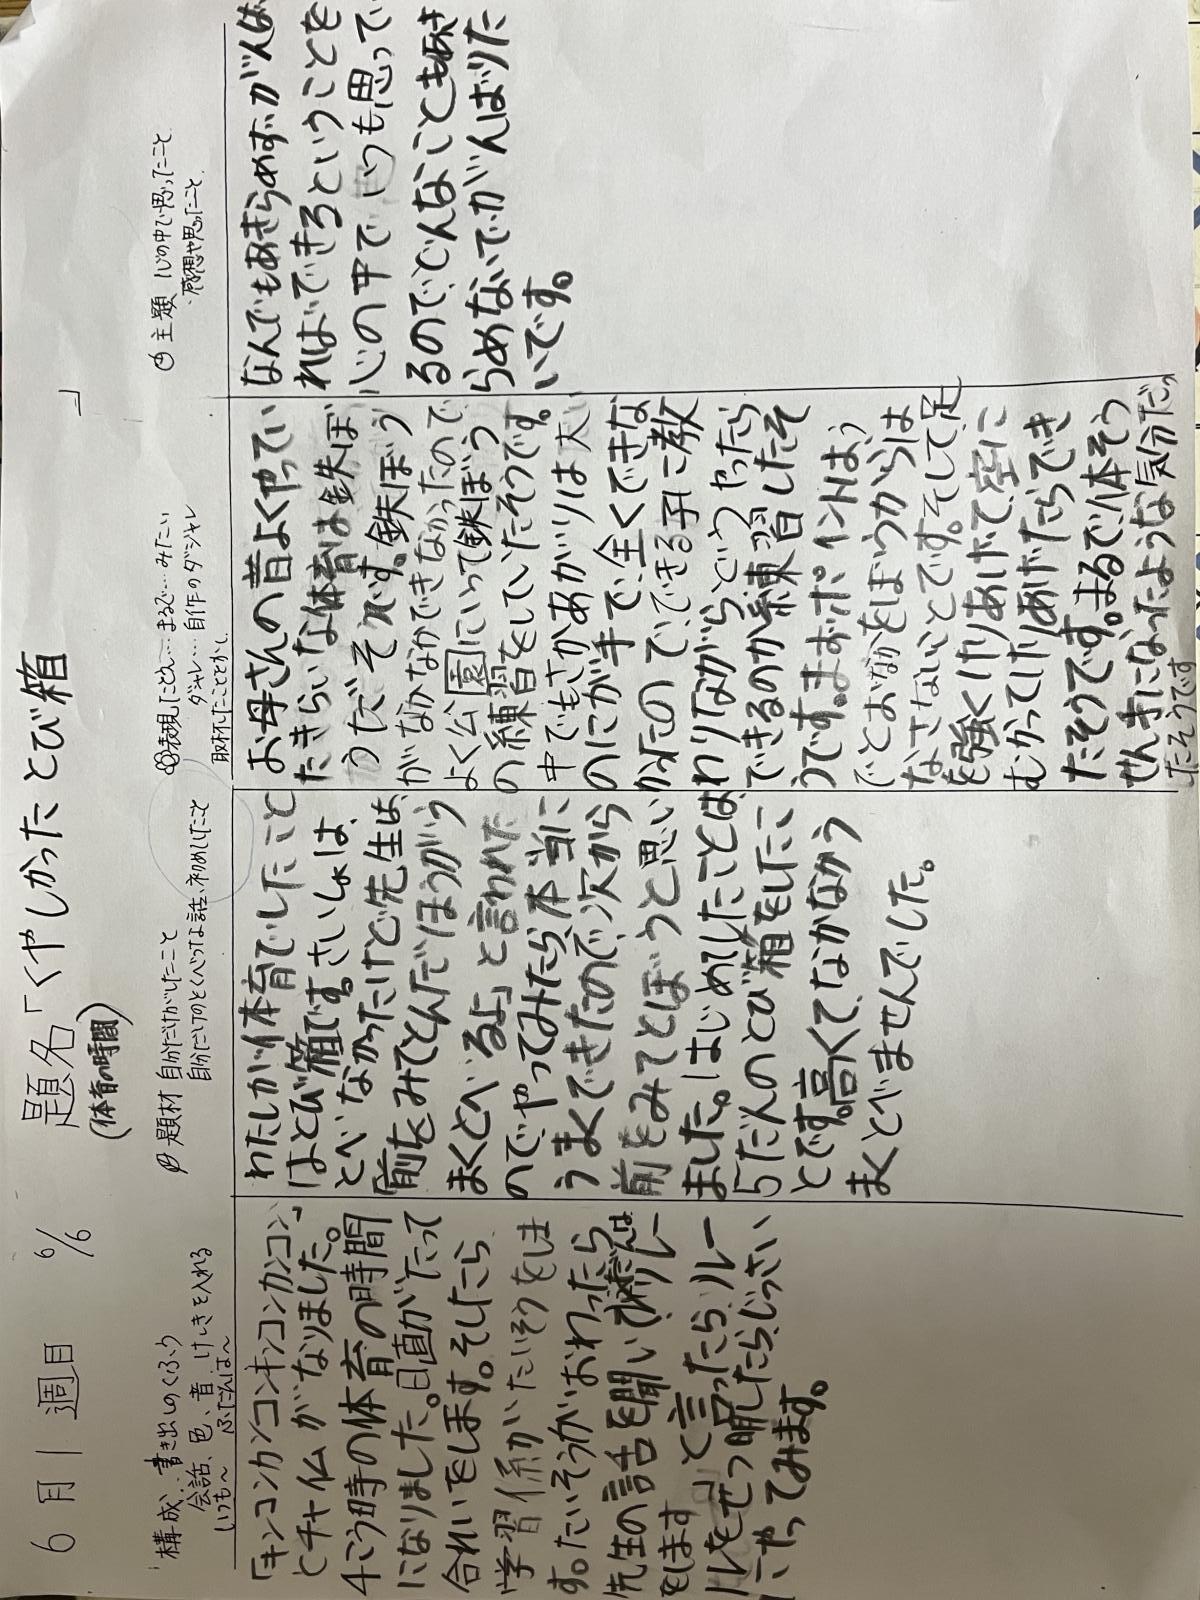 6月1週目 6/6
題名「くやしかったとび箱」
(体育の時間)
構成、書き出しのくふう
会話、色、音、けしきを入れる
いつも～ ふだんは～
「キンコンカンコンキンコンカンコン」
とチャイムがなりました。
4こう時の体育の時間
になりました。日直がたって
合れいをします。そしたら
学習係がたいそうをしま
す。たいそうがおわったら
先生の話を聞いて
をします」と言ったらルー
ルをせつ明したらじっさい
にやってみます。
題材 自分だけがしたこと
自分だけのとくべつな話、初めてしたこと
わたしが体育でしたこと
はとび箱です。さいしょは、
とべなかったけど先生は、
「前をみてとんだほうがう
まくとべるよ」と言われた
のでやってみたら、本当に
うまくできたので次から
前をみてとぼうと思い
ました。はじめてしたことは
5だんのとび箱をしたこ
とです。高くてなかなかう
まくとべませんでした。
表現したごん…まるで…みたい
ダジャレ…自作のダジャレ
取材したこととか、
お母さんの昔よくやってい
たきらいな体育は鉄ぼ
うだそです。鉄ぼう
がなかなかできなかったので
よく公園にいって鉄ぼう
の練習をしていたそうです。
中でもさかあがりは大い
のにが手で、全くできな
かったので、できる子に教
わりながらどうやったら
できるのか練習したそ
うです。まおポイントは、う
でとおなかをぼうからは
なさないことです。そして足
を強くけりあげて空に
むかってけりあげたらでき
たそうです。まるで体そう
せんきになったような気分だっ
たそうです
主題 心の中で思ったこと
・感想や思ったこと
なんでもあきらめずがんば
ればできるということを
心の中でいつも思ってい
るのでどんなこともあき
らめないでがんばりた
いです。